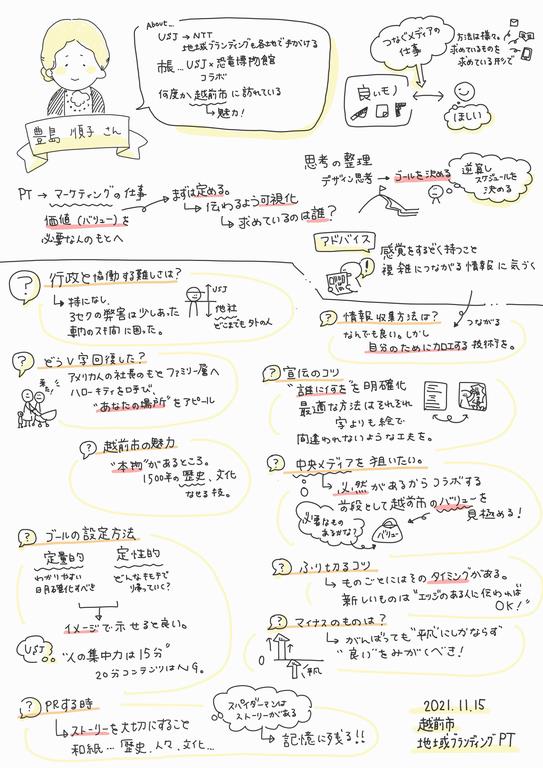 豊島 順子 さん
About...
USJ → NTT
地域ブランディングも各地で手がける
帳... USJ×恐竜博物館
コラボ
何度か越前市に訪れている
↳ 魅力！
つなぐメディアの
仕事
方法は様々。
求めているものを
求めている形で
良いモノ
ほしい
PT → マーケティングの仕事
価値（バリュー）を
必要な人のもとへ
まずは定める。
↳ 伝わるよう可視化
↳ 求めているのは誰？
思考の整理
デザイン思考 → ゴールを決める
逆算し
スケジュールを
決める
アドバイス
感覚をするどく持つこと
複雑につながる情報に気づく
つながる
? 行政と協働する難しさは？
↳ 特になし。
3セクの弊害は少しあった
専門のスキ間に困った。
USJ
他社
どこまでも外の人
? 情報収集方法は？
なんでも良い。しかし
自分のためにカロエする技術を。
? どうV字回復した？
アメリカ人の社長のもとファミリー層へ
ハローキティを呼び、
"あなたの場所"をアピール
? 宣伝のコツ
"誰に何を"を明確化
最適な方法はそれぞれ
字よりも絵で
間違われないような工夫を。
? 越前市の魅力
"本物"があるところ。
1500年の歴史、文化
なせる技。
? 中央メディアを狙いたい。
↳ 必然があるからコラボする
前段として越前市のバリューを
見極める！
必要なもの
あるかな？
バリュー
? ゴールの設定方法
定量的
わかりやすい
明確化すべき
定性的
どんなキモチで
帰っていく？
イメージで示せると良い。
USJ
"人の集中力は15分"
20分コンテンツはNG。
? ふり切るコツ
↳ ものごとにはそのタイミングがある。
新しいものは"エッジのある人に伝われば
OK！"
? マイナスのものは？
↳ がんばっても"平凡"にしかならず
"良い"をみがくべき！
0
平凡
? PRする時
↳ ストーリーを大切にすること
和紙... 歴史、人々、文化...
スパイダーマンは
ストーリーがある
↳ 記憶に残る！！
2021.11.15
越前市
地域ブランディングPT